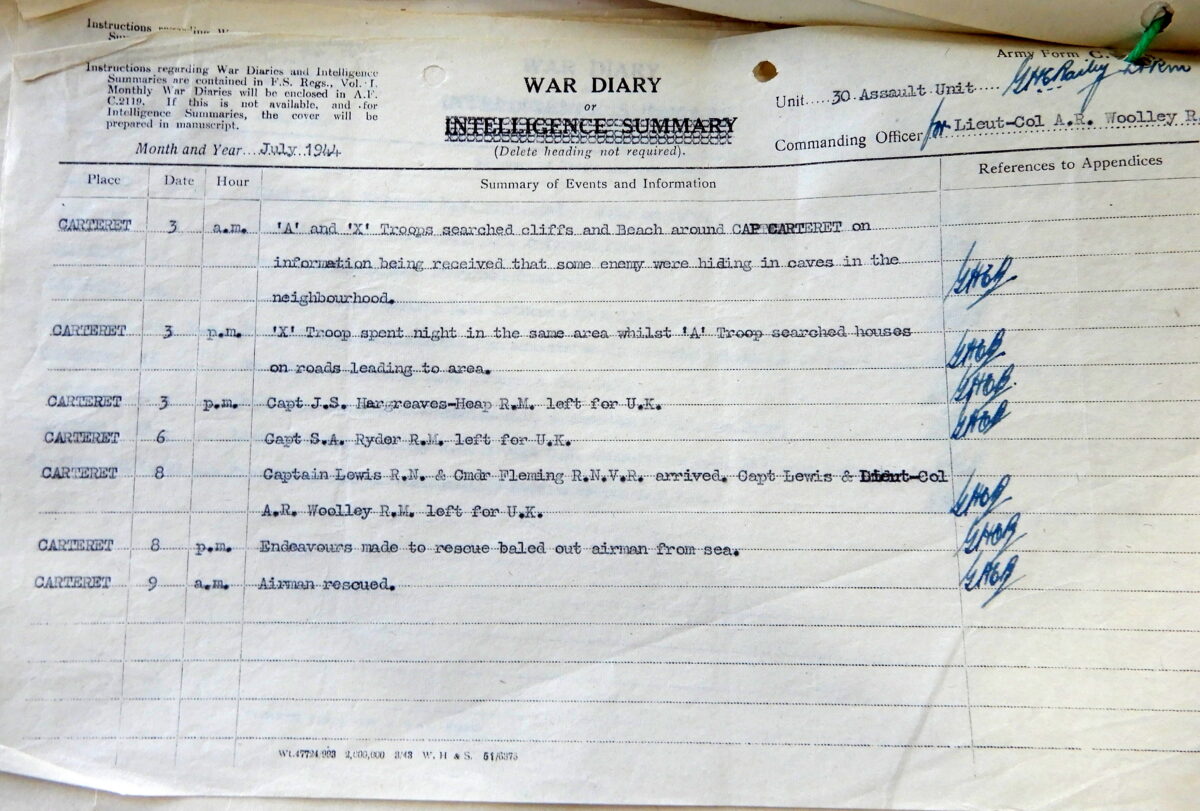 Instructions
Instructions regarding War Diaries and Intelligence
Summaries are contained in F.S. Regs., Vol. I.
Monthly War Diaries will be enclosed in A.F.
C.2119. If this is not available, and for
Intelligence Summaries, the cover will be
prepared in manuscript.
Month and Year July 1944
WAR DIARY
or
INTELLIGENCE SUMMARY
(Delete heading not required).
Army Form C.
Unit 30 Assault Unit
Commanding Officer for Lieut-Col A.R. Woolley R.
Place Date Hour Summary of Events and Information References to Appendices
CARTERET 3 a.m. 'A' and 'X' Troops searched cliffs and Beach around CAP CARTERET on
information being received that some enemy were hiding in caves in the
neighbourhood. GHEB
CARTERET 3 p.m. 'X' Troop spent night in the same area whilst 'A' Troop searched houses
on roads leading to area. GHEB
CARTERET 3 p.m. Capt J.S. Hargreaves-Heap R.M. left for U.K. GHEB
CARTERET 6 Capt S.A. Ryder R.M. left for U.K. GHEB
CARTERET 8 Captain Lewis R.N. & Cmdr Fleming R.N.V.R. arrived. Capt Lewis & Lieut-Col
A.R. Woolley R.M. left for U.K. GHEB
CARTERET 8 p.m. Endeavours made to rescue baled out airman from sea. GHEB
CARTERET 9 a.m. Airman rescued. GHEB
Wt.47724/993 2,000,000 3/43 W. H & S. 51/6375